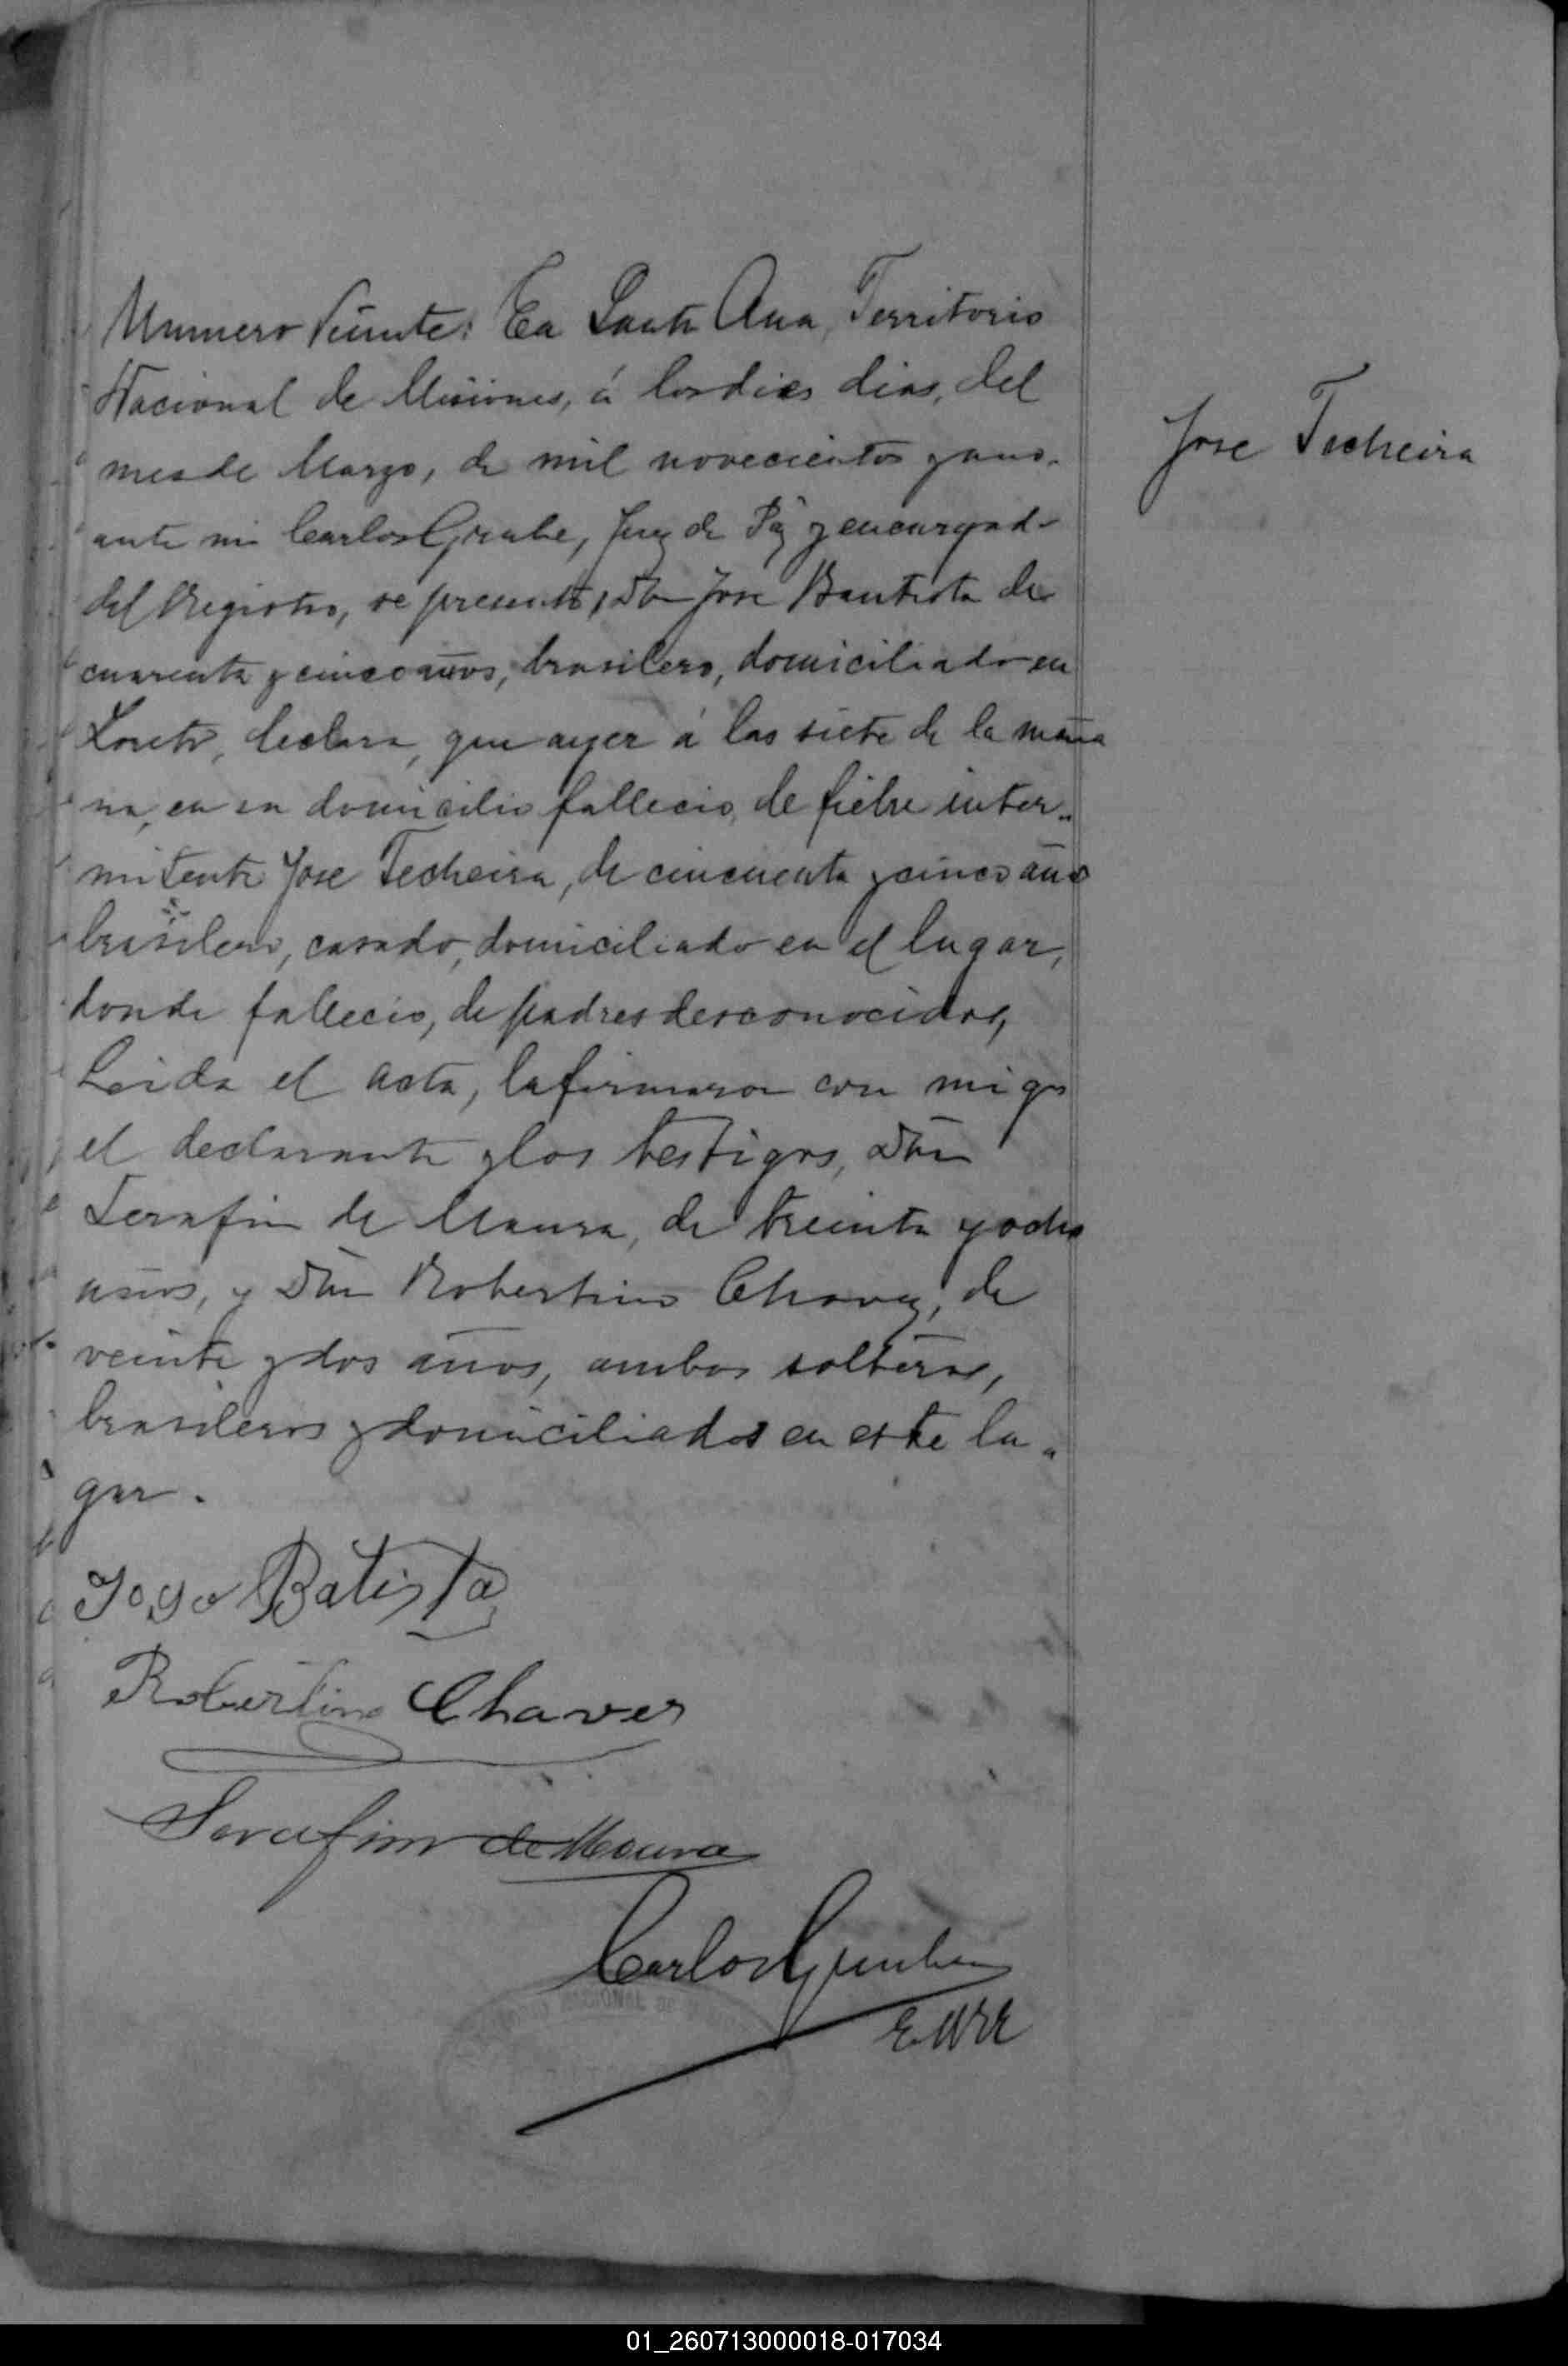 Numero Veinte: En Santa Ana, Territorio
Nacional de Misiones, á los dies dias, del
mes de Marzo, de mil novecientos y uno.
ante mi Carlos Grube, Juez de Paz y encargado
del Registro, se presentó, Dn Jose Bautista de
cuarenta y cinco años, brasilero, domiciliado en
Loreto, declara, que ayer á las siete de la maña
na, en su domicilio fallecio, de fiebre inter-
mitente Jose Techeira, de cincuenta y cinco años
brasilero, casado, domiciliado en el lugar,
donde fallecio, de padres desconocidos,
Leida el acta, la firmaron con migo
el declarante y los testigos, Dn
Serafin de Maura, de treinta y ocho
años, y Dn Robertino Chavez, de
veinte y dos años, ambos solteros,
brasileros y domiciliados en este lu-
gar.
Jose Techeira
Joyo Batista
Robertino Chaves
Serafim de Moura
Carlos Grube
NACIONAL DE
01_260713000018-017034